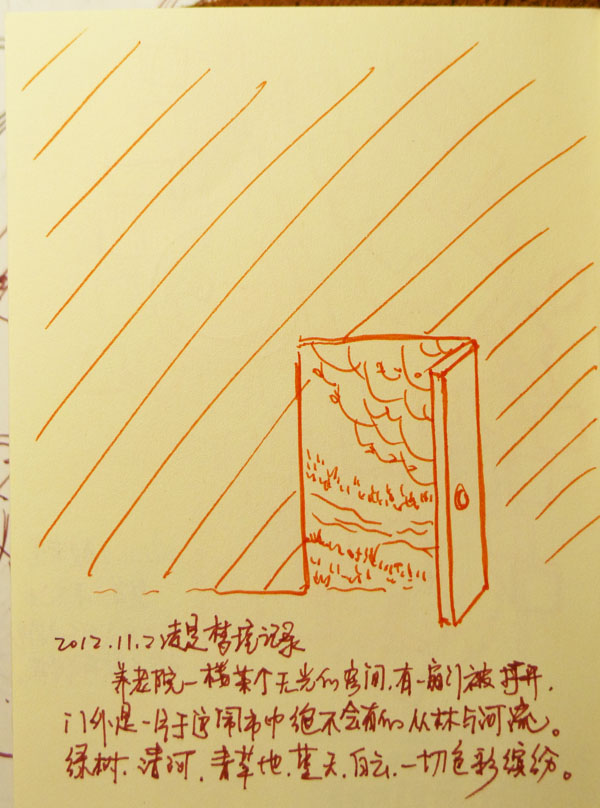 2012.11.2 凌晨梦境记录
养老院一楼某个无光的房间,有一扇门被打开,
门外是一片于这闹市中绝不会有的丛林与河流。
绿树、清河、青草地、蓝天、白云,一切色彩缤纷。